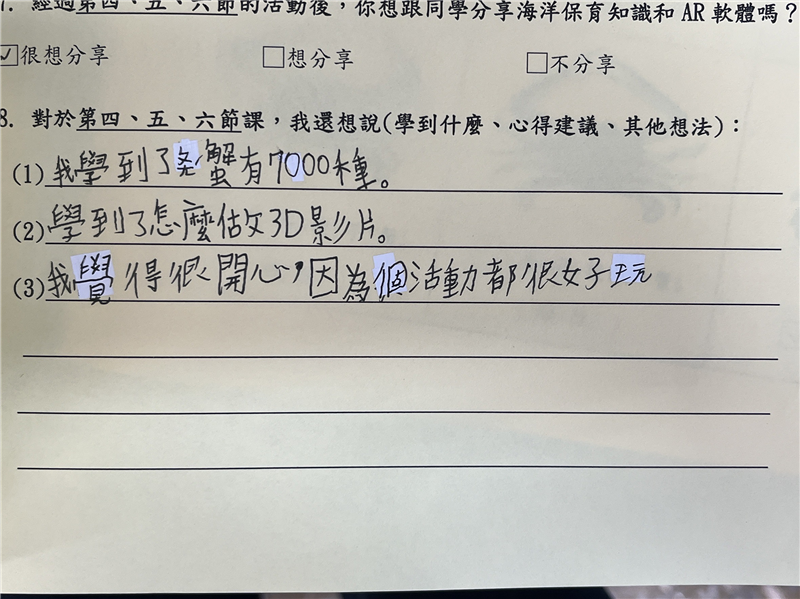 7. 經過第四、五、六節的活動後，你想跟同學分享海洋保育知識和 AR 軟體嗎？
☑很想分享 □想分享 □不分享
8. 對於第四、五、六節課，我還想說(學到什麼、心得建議、其他想法)：
(1) 我學到了螃蟹有7000種。
(2) 學到了怎麼做3D影片。
(3) 我覺得很開心，因為個活動都很好玩